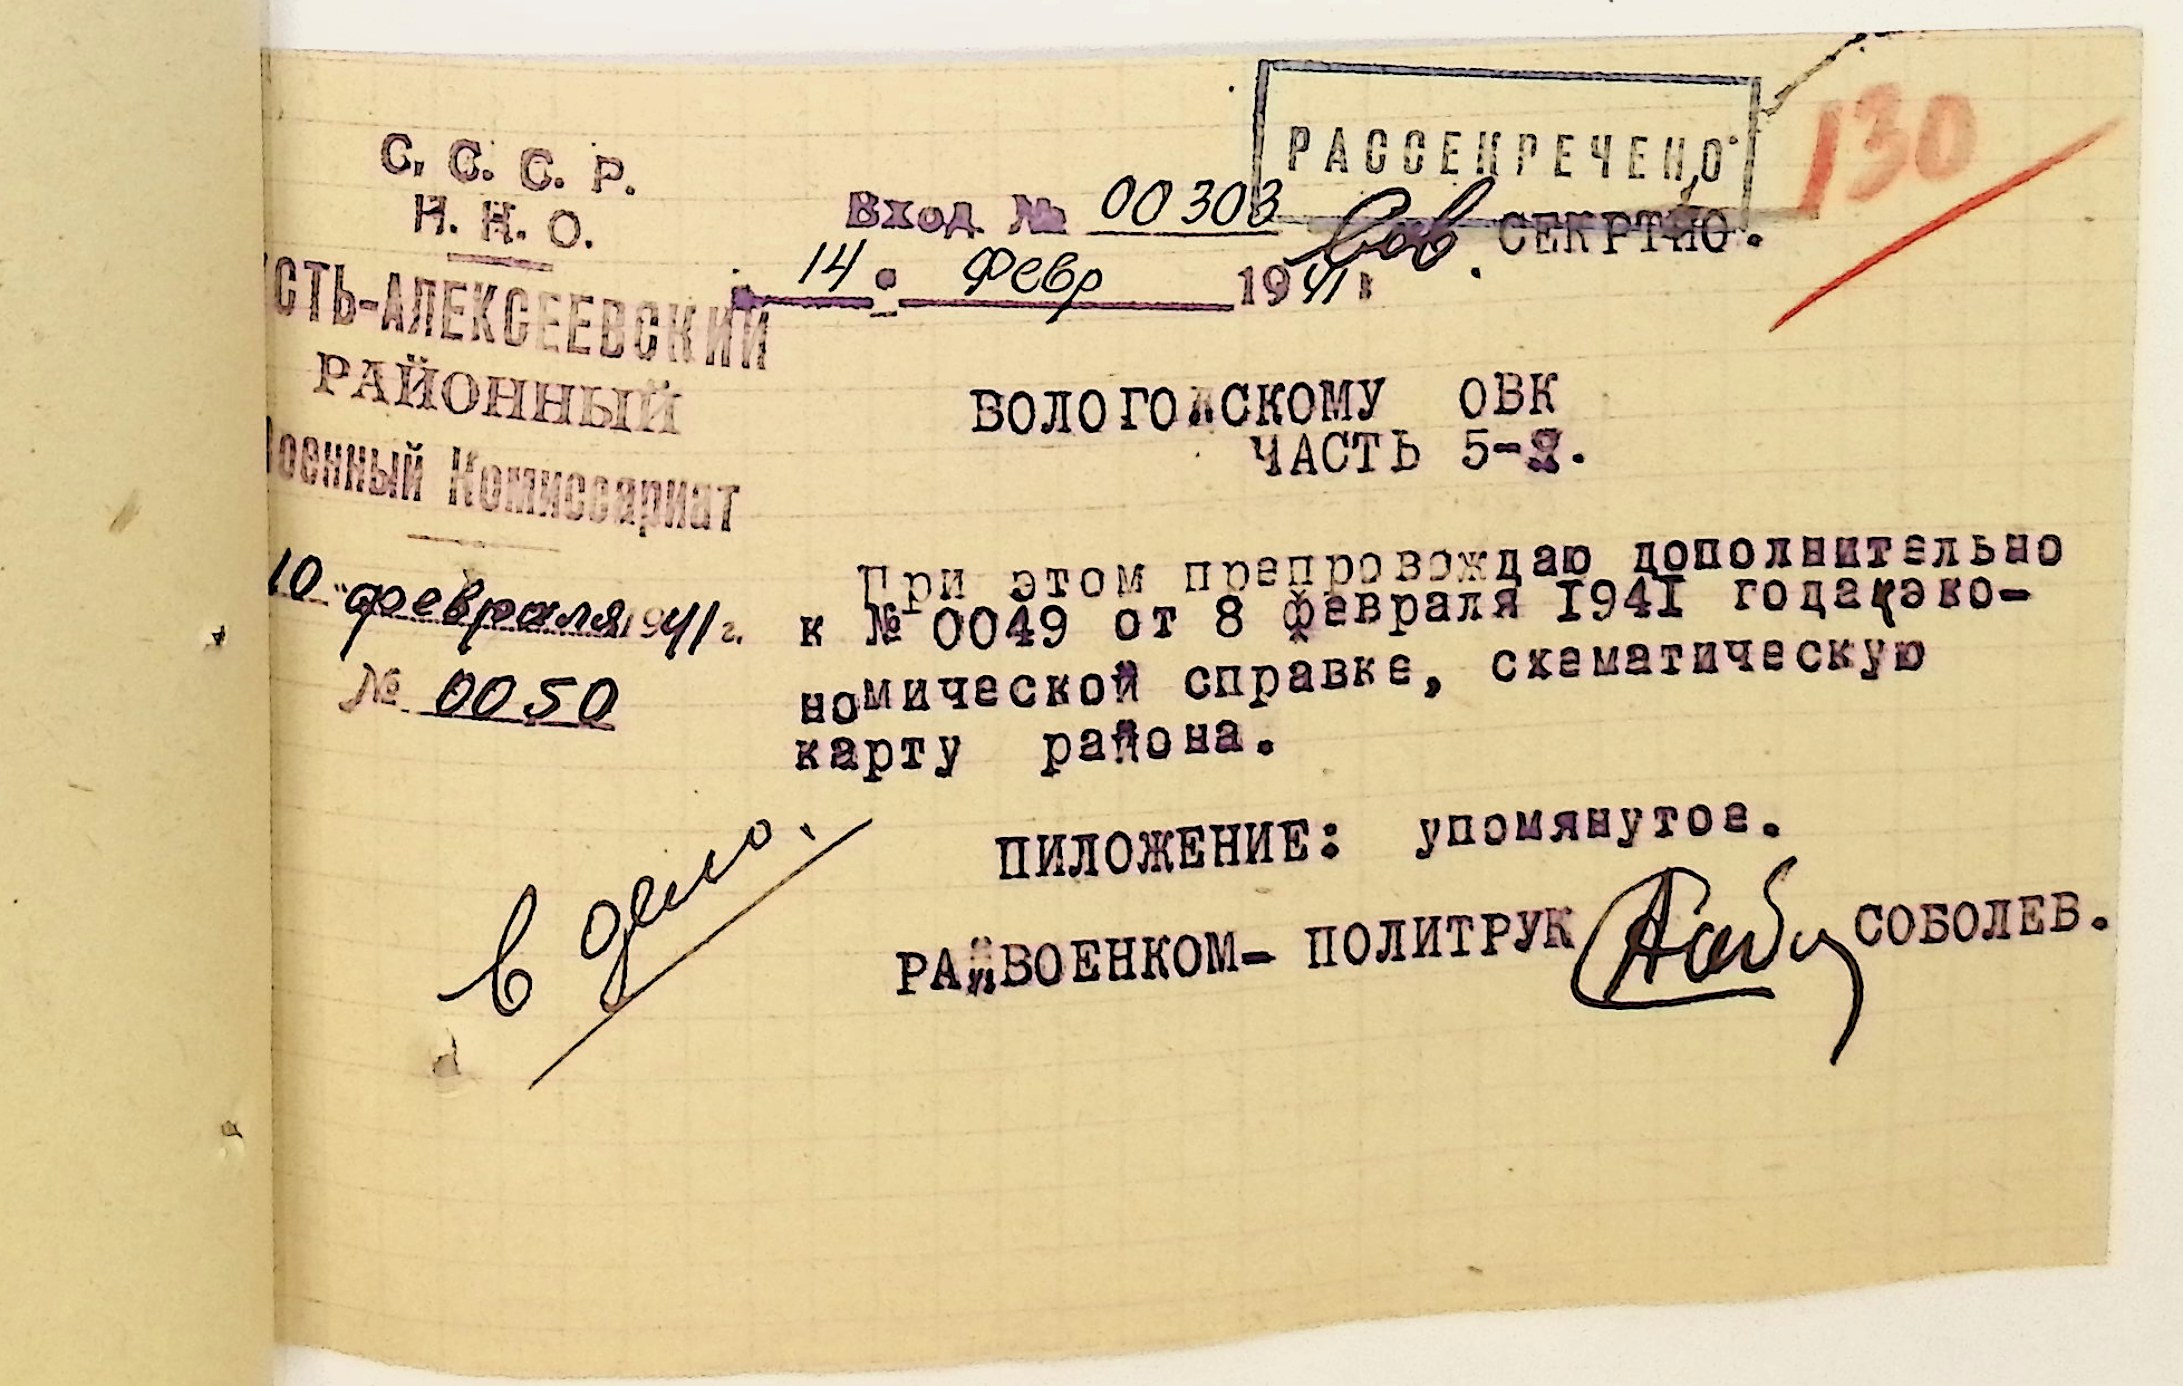 РАССЕКРЕЧЕНО
130
С. С. С. Р.
Н. К. О.
СТЬ-АЛЕКСЕЕВСКИЙ
РАЙОННЫЙ
оенный Комиссариат
10 февраля 1941 г.
№ 0050
Вход. № 00303
14 февр 1941 г
Сов. СЕКРТНО.
ВОЛОГОДСКОМУ ОВК
ЧАСТЬ 5-Я.
При этом препровождаю дополнительно
к № 0049 от 8 февраля 1941 года, эко-
номической справке, схематическую
карту района.
ПИЛОЖЕНИЕ: упомянутое.
РАЙВОЕНКОМ- ПОЛИТРУК СОБОЛЕВ.
в дело.